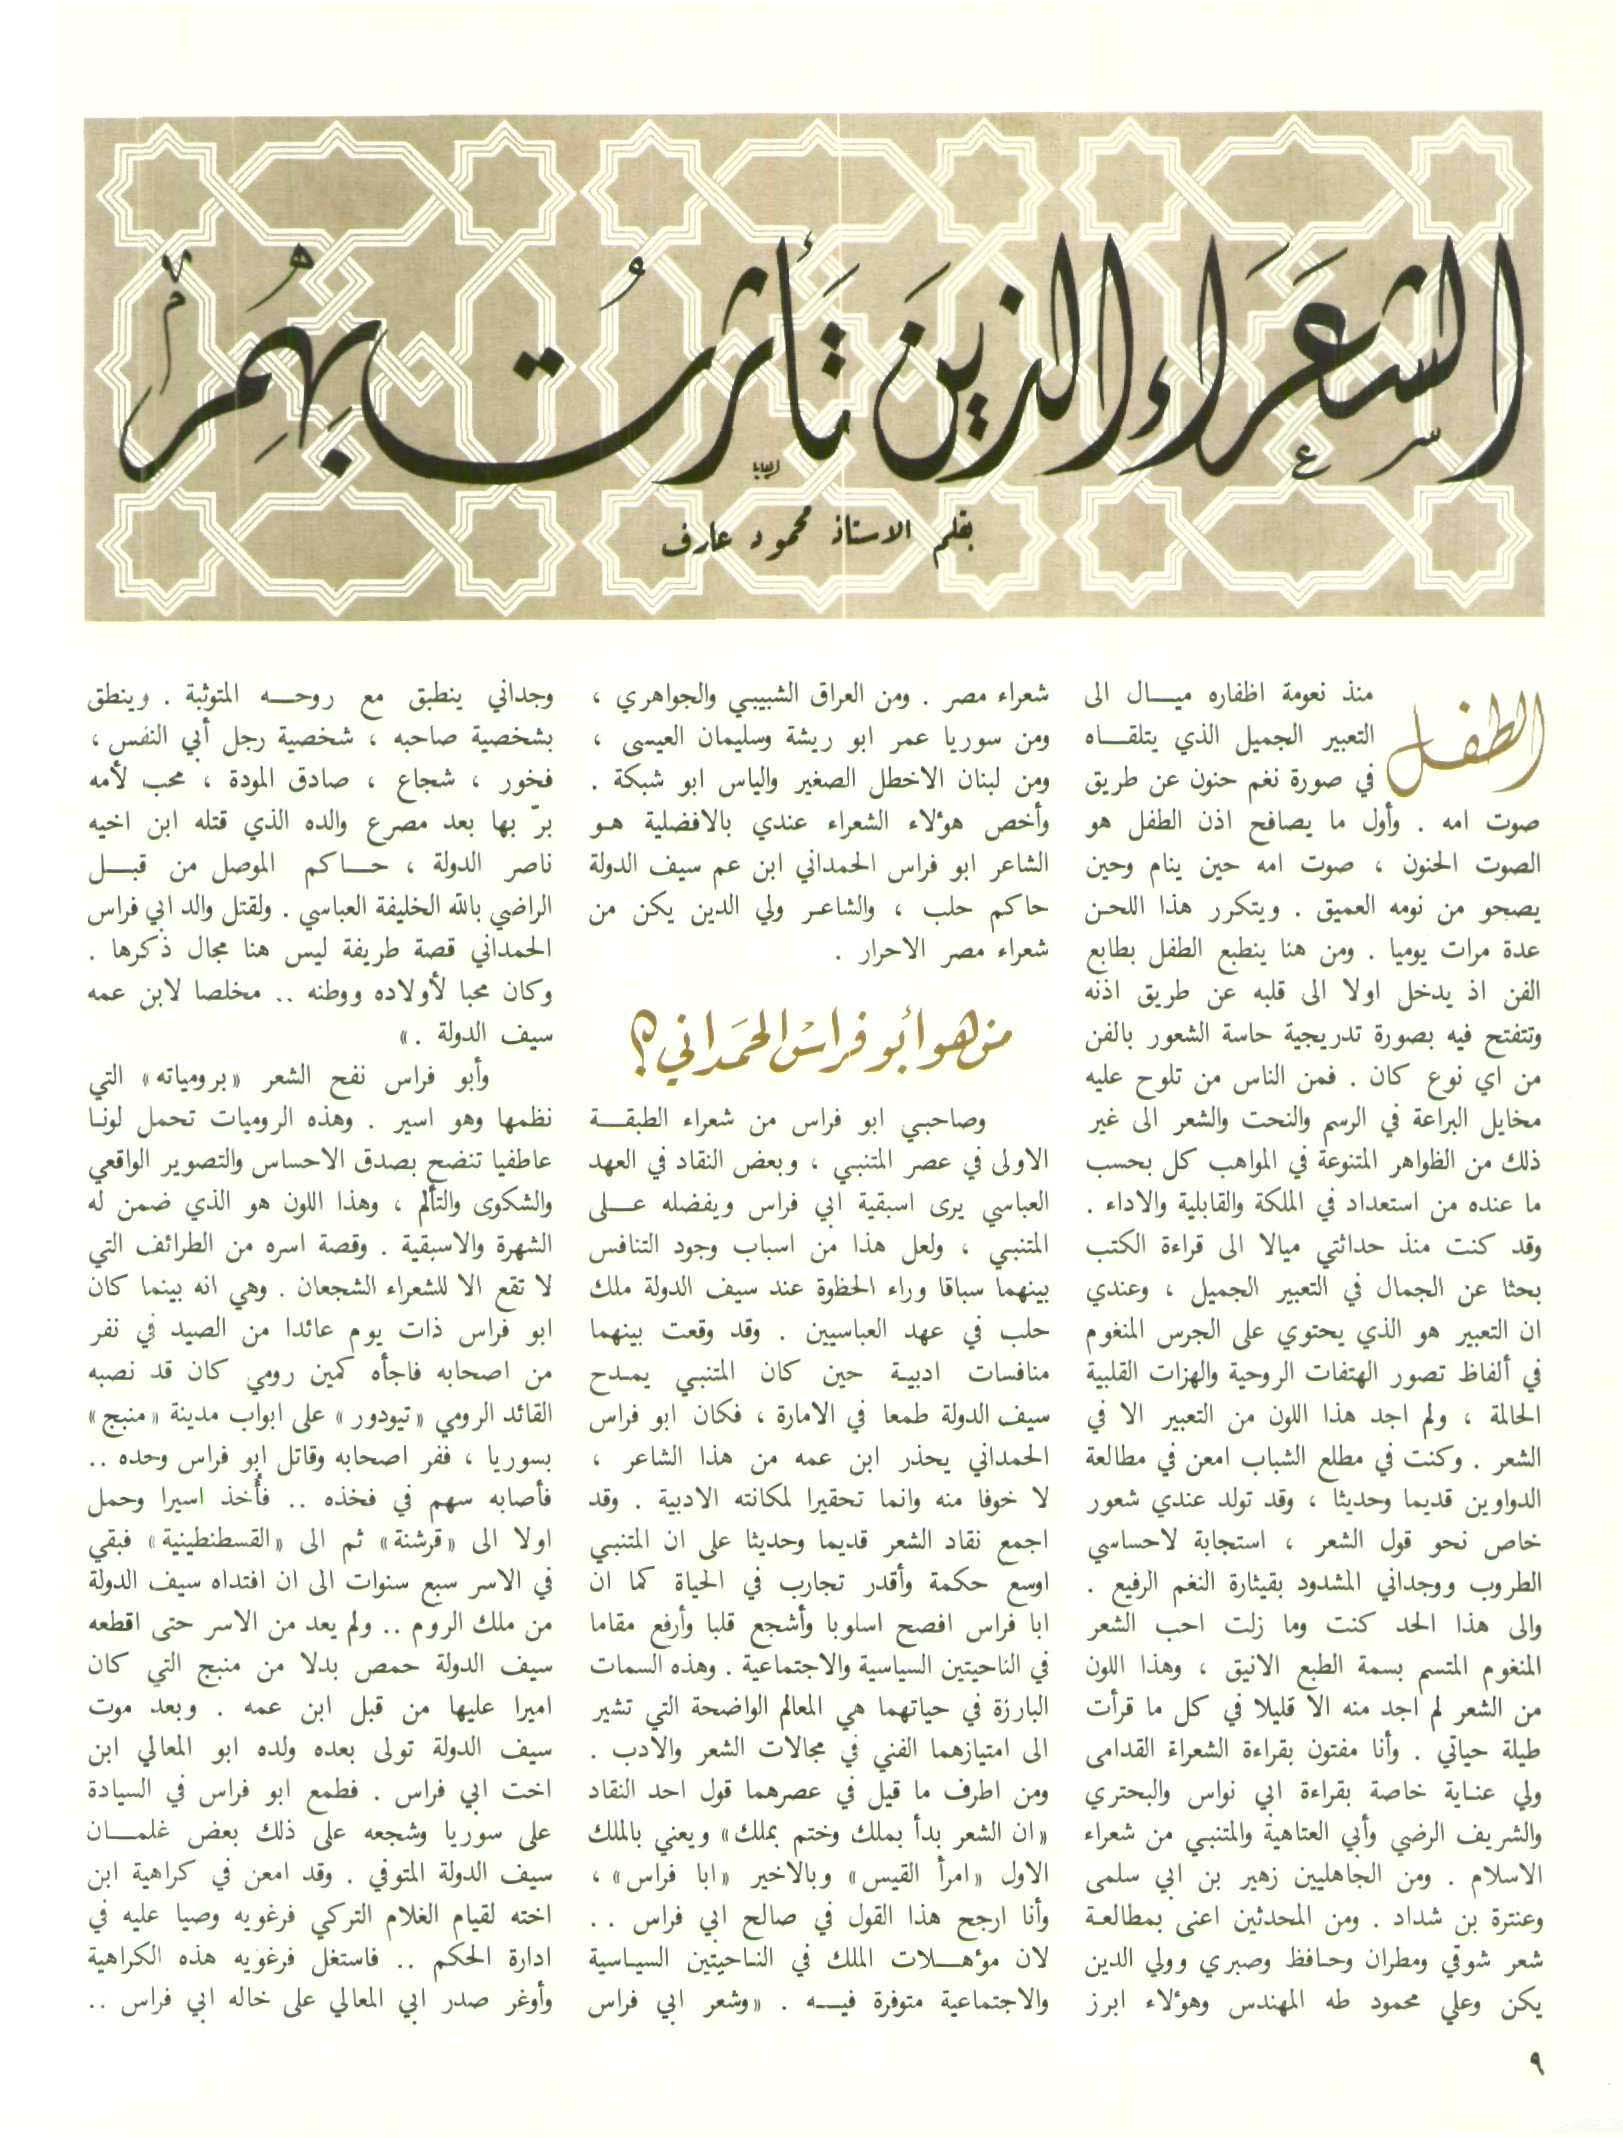 الشعراء الذين تأثرت بهم
بقلم الاستاذ محمود عارف
الطفل منذ نعومة اظفاره ميال الى
التعبير الجميل الذي يتلقاه
في صورة نغم حنون عن طريق
صوت امه . وأول ما يصافح اذن الطفل هو
الصوت الحنون ، صوت امه حين ينام وحين
يصحو من نومه العميق . ويتكرر هذا اللحن
عدة مرات يوميا . ومن هنا ينطبع الطفل بطابع
الفن اذ يدخل اولا الى قلبه عن طريق اذنه
وتتفتح فيه بصورة تدريجية حاسة الشعور بالفن
من اي نوع كان . فمن الناس من تلوح عليه
مخايل البراعة في الرسم والنحت والشعر الى غير
ذلك من الظواهر المتنوعة في المواهب كل بحسب
ما عنده من استعداد في الملكة والقابلية والاداء .
وقد كنت منذ حداثتي ميالا الى قراءة الكتب
بحثا عن الجمال في التعبير الجميل ، وعندي
ان التعبير هو الذي يحتوي على الجرس المنغوم
في ألفاظ تصور الهتفات الروحية والهزات القلبية
الحالمة ، ولم اجد هذا اللون من التعبير الا في
الشعر . وكنت في مطلع الشباب امعن في مطالعة
الدواوين قديما وحديثا ، وقد تولد عندي شعور
خاص نحو قول الشعر ، استجابة لاحساسي
الطروب ووجداني المشدود بقيثارة النغم الرفيع .
والى هذا الحد كنت وما زلت احب الشعر
المنغوم المتسم بسمة الطبع الانيق ، وهذا اللون
من الشعر لم اجد منه الا قليلا في كل ما قرأت
طيلة حياتي . وأنا مفتون بقراءة الشعراء القدامى
ولي عناية خاصة بقراءة ابي نواس والبحتري
والشريف الرضي وأبي العتاهية والمتنبي من شعراء
الاسلام . ومن الجاهليين زهير بن ابي سلمى
وعنترة بن شداد . ومن المحدثين اعنى بمطالعة
شعر شوقي ومطران وحافظ وصبري وولي الدين
يكن وعلي محمود طه المهندس وهؤلاء ابرز
شعراء مصر . ومن العراق الشبيبي والجواهري ،
ومن سوريا عمر ابو ريشة وسليمان العيسى ،
ومن لبنان الاخطل الصغير والياس ابو شبكة .
وأخص هؤلاء الشعراء عندي بالافضلية هو
الشاعر ابو فراس الحمداني ابن عم سيف الدولة
حاكم حلب ، والشاعر ولي الدين يكن من
شعراء مصر الاحرار .
من هو أبو فراس الحمداني ؟
وصاحبي ابو فراس من شعراء الطبقة
الاولى في عصر المتنبي ، وبعض النقاد في العهد
العباسي يرى اسبقية ابي فراس ويفضله على
المتنبي ، ولعل هذا من اسباب وجود التنافس
بينهما سباقا وراء الحظوة عند سيف الدولة ملك
حلب في عهد العباسيين . وقد وقعت بينهما
منافسات ادبية حين كان المتنبي يمدح
سيف الدولة طمعا في الامارة ، فكان ابو فراس
الحمداني يحذر ابن عمه من هذا الشاعر ،
لا خوفا منه وانما تحقيرا لمكانته الادبية . وقد
اجمع نقاد الشعر قديما وحديثا على ان المتنبي
اوسع حكمة وأقدر تجارب في الحياة كما ان
ابا فراس افصح اسلوبا وأشجع قلبا وأرفع مقاما
في الناحيتين السياسية والاجتماعية . وهذه السمات
البارزة في حياتهما هي المعالم الواضحة التي تشير
الى امتيازهما الفني في مجالات الشعر والادب .
ومن اطرف ما قيل في عصرهما قول احد النقاد
«ان الشعر بدأ بملك وختم بملك» ويعني بالملك
الاول «امرأ القيس» وبالاخير «ابا فراس» ،
وأنا ارجح هذا القول في صالح ابي فراس ..
لان مؤهلات الملك في الناحيتين السياسية
والاجتماعية متوفرة فيه . «وشعر ابي فراس
وجداني ينطبق مع روحه المتوثبة . وينطق
بشخصية صاحبه ، شخصية رجل أبي النفس ،
فخور ، شجاع ، صادق المودة ، محب لأمه
برّ بها بعد مصرع والده الذي قتله ابن اخيه
ناصر الدولة ، حاكم الموصل من قبل
الراضي بالله الخليفة العباسي . ولقتل والد ابي فراس
الحمداني قصة طريفة ليس هنا مجال ذكرها .
وكان محبا لأولاده ووطنه .. مخلصا لابن عمه
سيف الدولة .»
وأبو فراس نفح الشعر «برومياته» التي
نظمها وهو اسير . وهذه الروميات تحمل لونا
عاطفيا تنضح بصدق الاحساس والتصوير الواقعي
والشكوى والتألم ، وهذا اللون هو الذي ضمن له
الشهرة والاسبقية . وقصة اسره من الطرائف التي
لا تقع الا للشعراء الشجعان . وهي انه بينما كان
ابو فراس ذات يوم عائدا من الصيد في نفر
من اصحابه فاجأه كمين رومي كان قد نصبه
القائد الرومي «تيودور» على ابواب مدينة «منبج»
بسوريا ، ففر اصحابه وقاتل ابو فراس وحده ..
فأصابه سهم في فخذه .. فأُخذ اسيرا وحمل
اولا الى «قرشنة» ثم الى «القسطنطينية» فبقي
في الاسر سبع سنوات الى ان افتداه سيف الدولة
من ملك الروم .. ولم يعد من الاسر حتى اقطعه
سيف الدولة حمص بدلا من منبج التي كان
اميرا عليها من قبل ابن عمه . وبعد موت
سيف الدولة تولى بعده ولده ابو المعالي ابن
اخت ابي فراس . فطمع ابو فراس في السيادة
على سوريا وشجعه على ذلك بعض غلمان
سيف الدولة المتوفي . وقد امعن في كراهية ابن
اخته لقيام الغلام التركي فرغويه وصيا عليه في
ادارة الحكم .. فاستغل فرغويه هذه الكراهية
وأوغر صدر ابي المعالي على خاله ابي فراس ..
٩